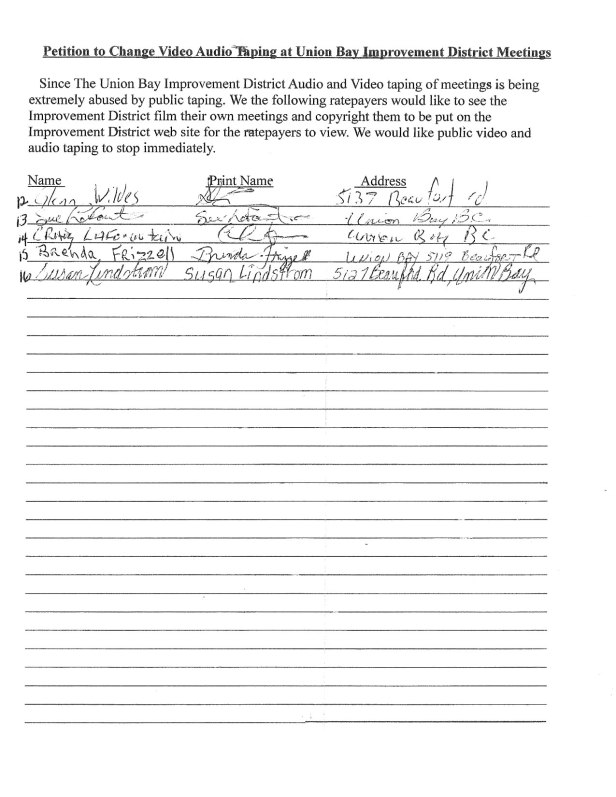 Petition to Change Video Audio Taping at Union Bay Improvement District Meetings
Since The Union Bay Improvement District Audio and Video taping of meetings is being
extremely abused by public taping. We the following ratepayers would like to see the
Improvement District film their own meetings and copyright them to be put on the
Improvement District web site for the ratepayers to view. We would like public video and
audio taping to stop immediately.
Name Print Name Address
12 Glenn Wildes 5137 Beaufort rd
13 Sue Union Bay BC.
14 Union Bay BC
15 Brenda FRIZZELL Brenda Frizzell UNION BAY 5119 BEAUFORT RD
16 Susan Lindstrom Susan Lindstrom 5127 Beauford Rd, Union Bay